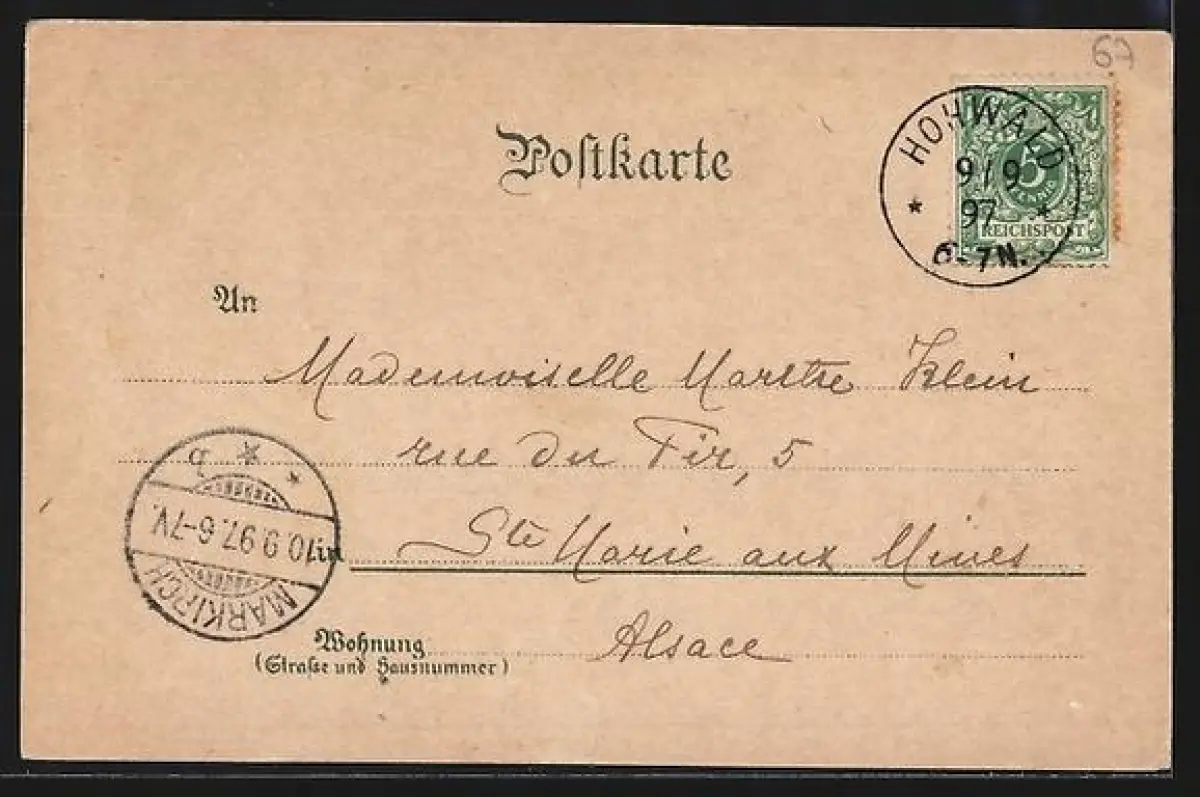 67
Postkarte
HOHWALD
9/9
97
6-7N.
5
PFENNIG
REICHSPOST
An
Mademoiselle Marthe Klein
rue du Tir, 5
in Ste Marie aux Mines
Alsace
Wohnung
(Straße und Hausnummer)
MARKIRCH
10.9.97.6-7V.